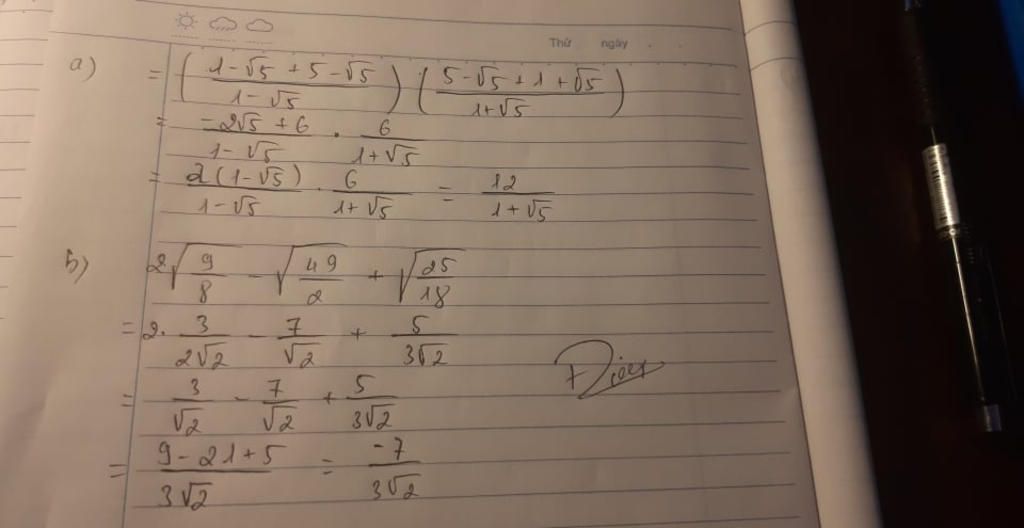 Thứ ngày
a) = ( (1 - √5 + 5 - √5) / (1 - √5) ) ( (5 - √5 + 1 + √5) / (1 + √5) )
= (-2√5 + 6) / (1 - √5) . 6 / (1 + √5)
= 2(1 - √5) / (1 - √5) . 6 / (1 + √5) = 12 / (1 + √5)
b) 2√(9/8) - √(49/2) + √(25/18)
= 2. 3 / (2√2) - 7 / √2 + 5 / (3√2)
= 3 / √2 - 7 / √2 + 5 / (3√2)
= (9 - 21 + 5) / (3√2) = -7 / (3√2)